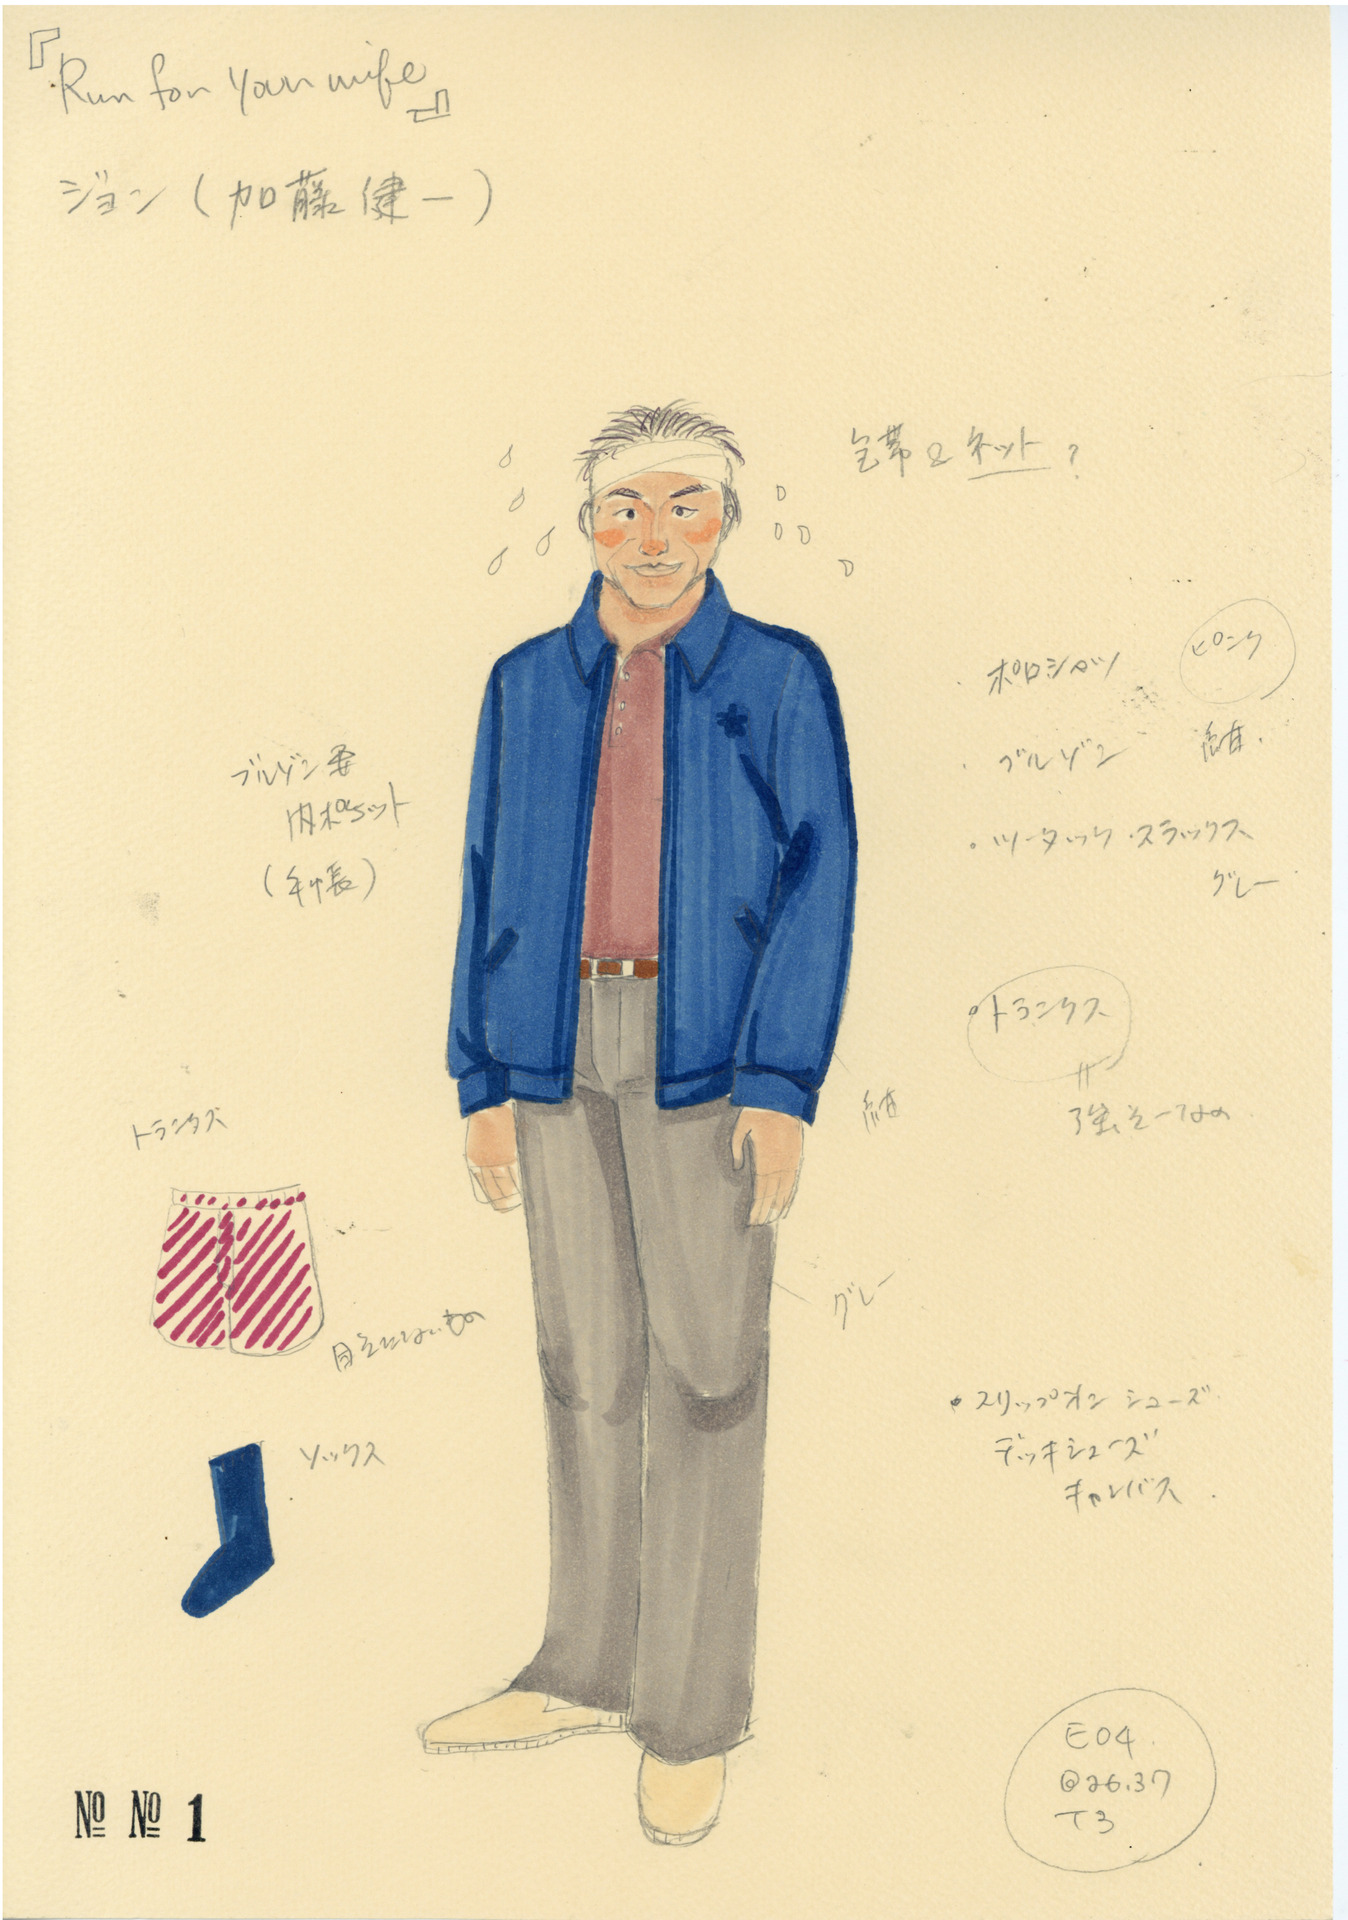 『Run for Your wife』
ジョン(加藤健一)
包帯とネット?
・ポロシャツ ピンク
・ブルゾン 紺.
・ツータック・スラックス
グレー
ブルゾン要
内ポケット
(手帳)
・トランクス
紺
トランクス
グレー
目立たないもの
・スリップオンシューズ
デッキシューズ
キャンバス.
ソックス
E04
@26.37
T3
№ № 1